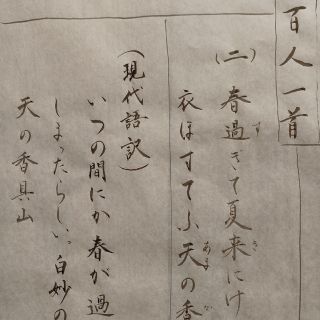 百人一首
(二) 春過ぎて夏来にけ
す
き
衣ほすてふ天の香
あま
か
(現代語訳)
いつの間にか春が過
しまったらしい。白妙の
天の香具山